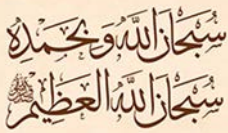 سُبْحَانَ اللَّهِ وَبِحَمْدِهِ
سُبْحَانَ اللَّهِ الْعَظِيمِ